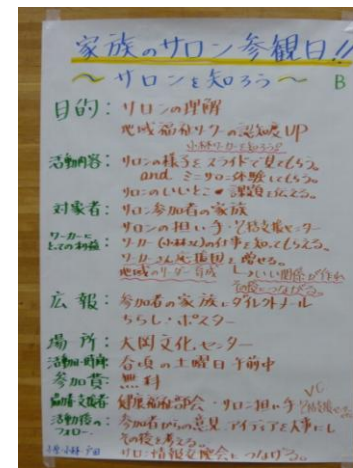 家族のサロン参観日!!
～サロンを知ろう～ B
目的：サロンの理解
地域福祉ワーカーの認知度UP
小林ワーカーを知ろう
活動内容：サロンの様子をスライドで見てもらう。
and ミニサロン体験してもらう。
サロンのいいとこ・課題を伝える。
対象者：サロン参加者の家族
サロンの担い手・包括支援センター
ワーカーにとっての利益：ワーカー(小林さん)の仕事を知ってもらえる。
ワーカーさん応援団を増やせる。
地域のリーダー育成 いい関係が作れ
支援につながる。
広報：参加者の家族にダイレクトメール
ちらし・ポスター
場所：大岡文化センター
活動日・時間：合頃の土曜日午前中
参加費：無料
協力者・支援者：健康福祉部会・サロン担い手 VC
活動後のフォロー：参加者からの意見・アイディアを大事にし
その後を考える。
サロン情報交換会につなげる。